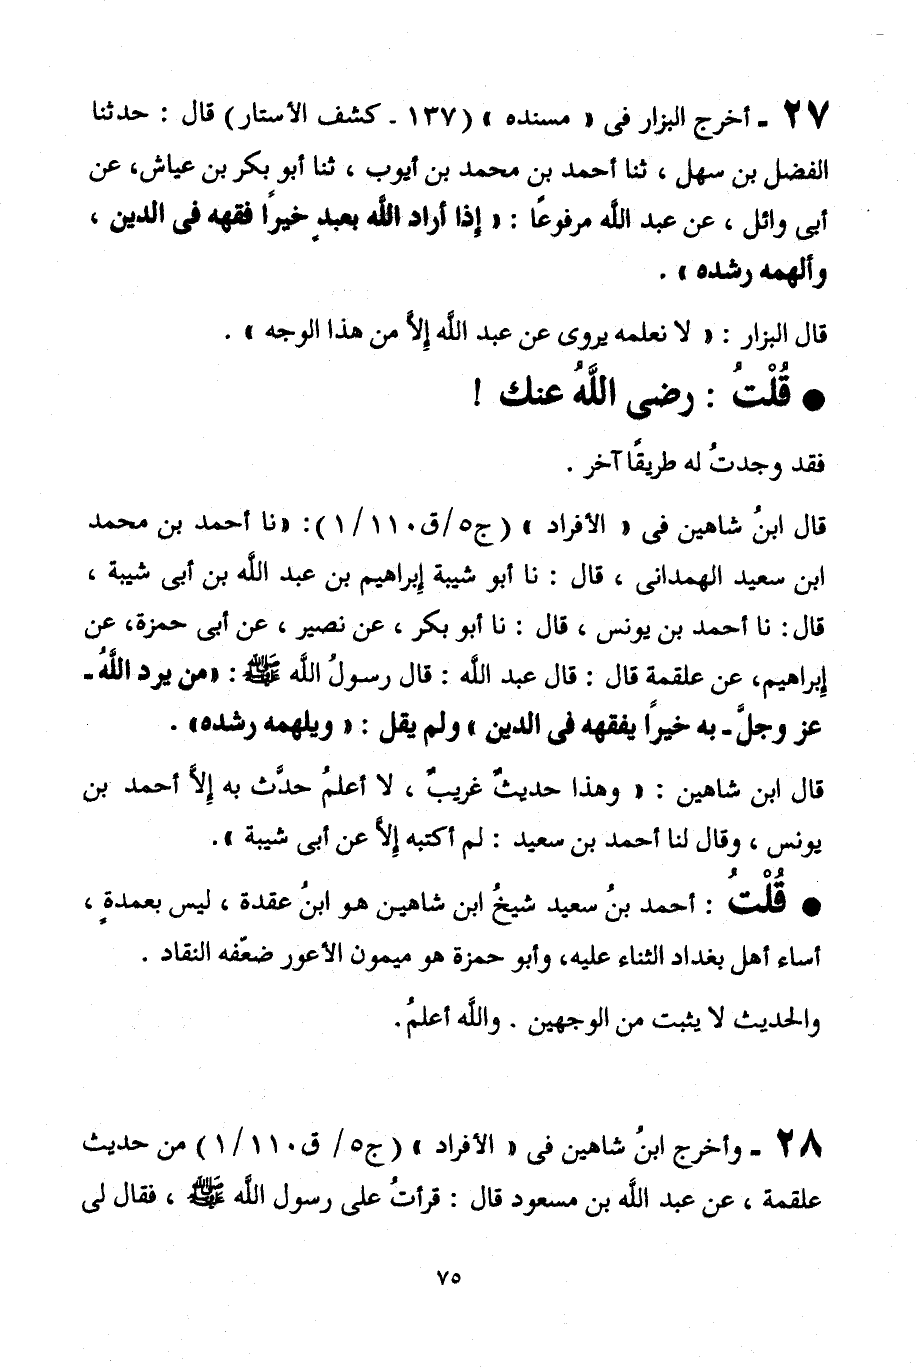 ٢٧ ـ أخرج البزار فى « مسنده » (١٣٧ ـ كشف الأستار) قال : حدثنا
الفضل بن سهل ، ثنا أحمد بن محمد بن أيوب ، ثنا أبو بكر بن عياش، عن
أبى وائل ، عن عبد اللَّه مرفوعًا : « إذا أراد اللَّه بعبدٍ خيرًا فقهه فى الدين ،
وألهمه رشده » .
قال البزار : « لا نعلمه يروى عن عبد اللَّه إلاَّ من هذا الوجه » .
● قُلْتُ : رضى اللَّهُ عنك !
فقد وجدتُ له طريقًا آخر .
قال ابنُ شاهين فى « الأفراد » (ج٥/ق١/١١٠): «نا أحمد بن محمد
ابن سعيد الهمدانى ، قال : نا أبو شيبة إبراهيم بن عبد اللَّه بن أبى شيبة ،
قال: نا أحمد بن يونس ، قال : نا أبو بكر ، عن نصير ، عن أبى حمزة، عن
إبراهيم، عن علقمة قال : قال عبد اللَّه : قال رسولُ اللَّه ﷺ : «من يرد اللَّهُ ـ
عز وجلَّ ـ به خيرًا يفقهه فى الدين » ولم يقل : « ويلهمه رشده» .
قال ابن شاهين : « وهذا حديثٌ غريبٌ ، لا أعلمُ حدَّث به إلاَّ أحمد بن
يونس ، وقال لنا أحمد بن سعيد : لم أكتبه إلاَّ عن أبى شيبة ».
● قُلْتُ : أحمد بنُ سعيد شيخُ ابن شاهين هو ابنُ عقدة ، ليس بعمدةٍ ،
أساء أهل بغداد الثناء عليه، وأبو حمزة هو ميمون الأعور ضعّفه النقاد .
والحديث لا يثبت من الوجهين . واللَّه أعلمُ.
٢٨ ـ وأخرج ابنُ شاهين فى « الأفراد » (ج٥/ ق١/١١٠) من حديث
علقمة ، عن عبد اللَّه بن مسعود قال : قرأتُ على رسول اللَّه ﷺ ، فقال لى
٧٥